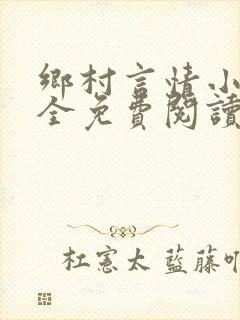 鄉村言情小
全免費閱讀
杜憲太 藍藤